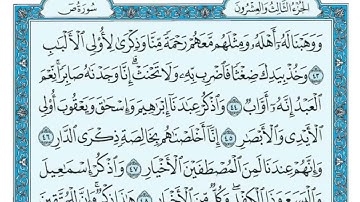 الجزء الثالث والعشرون سورة ص
وَوَهَبْنَا لَهُۥٓ أَهْلَهُۥ وَمِثْلَهُم مَّعَهُمْ رَحْمَةً مِّنَّا وَذِكْرَىٰ لِأُو۟لِى ٱلْأَلْبَٰبِ
٤٣ وَخُذْ بِيَدِكَ ضِغْثًا فَٱضْرِب بِّهِۦ وَلَا تَحْنَثْ إِنَّا وَجَدْنَٰهُ صَابِرًا نِّعْمَ
ٱلْعَبْدُ إِنَّهُۥٓ أَوَّابٌ ٤٤ وَٱذْكُرْ عِبَٰدَنَآ إِبْرَٰهِيمَ وَإِسْحَٰقَ وَيَعْقُوبَ أُو۟لِى
ٱلْأَيْدِى وَٱلْأَبْصَٰرِ ٤٥ إِنَّآ أَخْلَصْنَٰهُم بِخَالِصَةٍ ذِكْرَى ٱلدَّارِ ٤٦
وَإِنَّهُمْ عِندَنَا لَمِنَ ٱلْمُصْطَفَيْنَ ٱلْأَخْيَارِ ٤٧ وَٱذْكُرْ إِسْمَٰعِيلَ
وَٱلْيَسَعَ وَذَا ٱلْكِفْلِ وَكُلٌّ مِّنَ ٱلْأَخْيَارِ ٤٨ هَٰذَا ذِكْرٌ وَإِنَّ لِلْمُتَّقِينَ